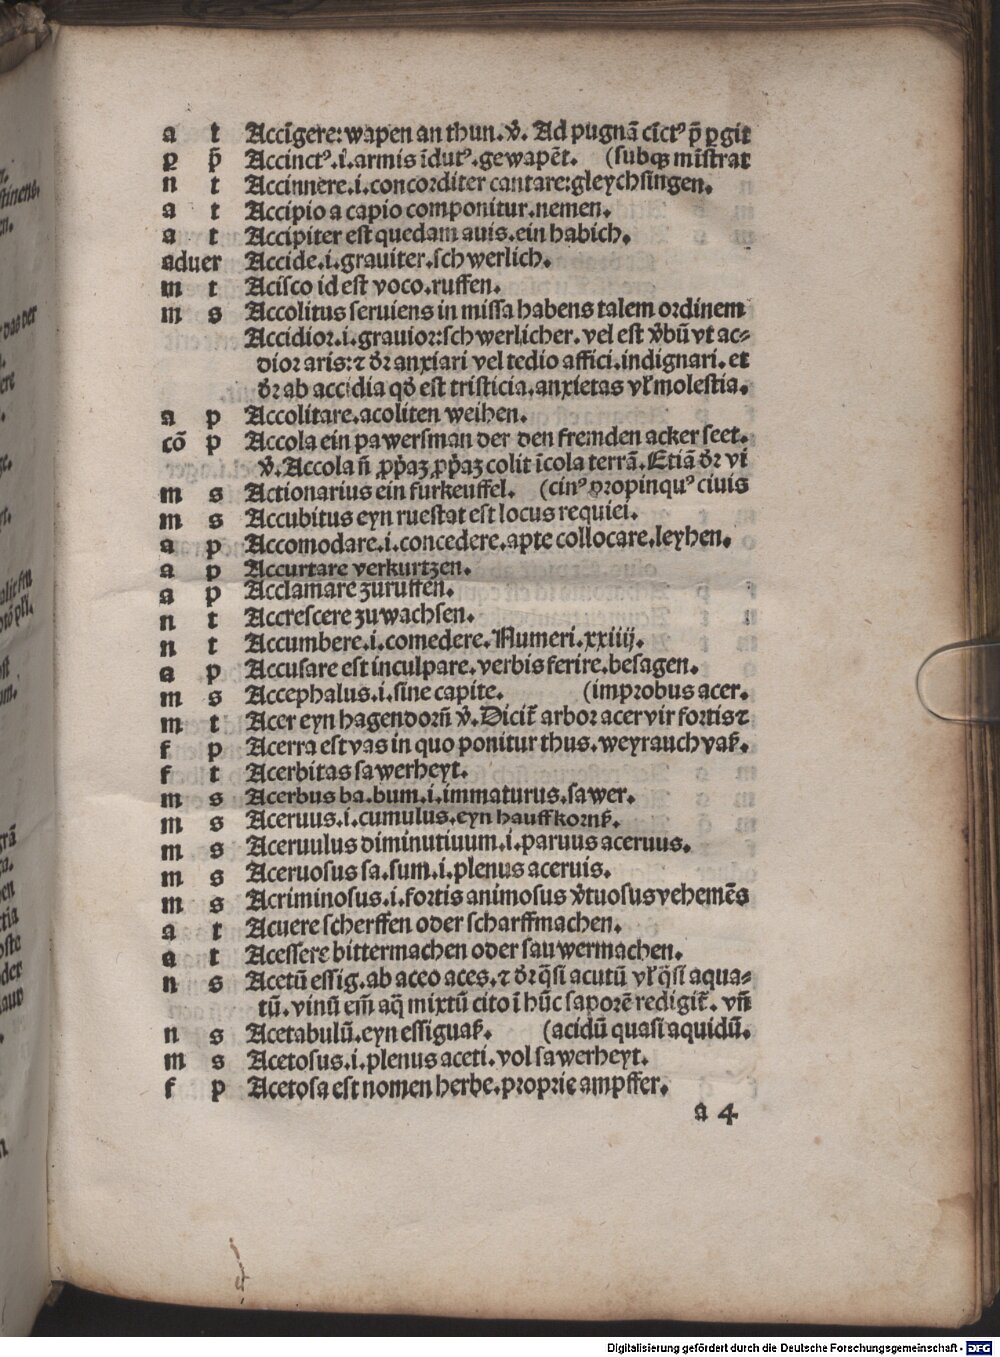 a t Accīgere: wapen an thun. v̄. Ad pugnā cīctꝰ p̄ ꝑgit
ꝑ p̄ Accinctꝰ.i. armis īdutꝰ. gewapēt. (subqꝫ mīstrat
n t Accinnere.i. concorditer cantare: gleychsingen.
a t Accipio a capio componitur. nemen.
a t Accipiter est quedam auis. ein habich.
aduer Accide.i. grauiter. schwerlich.
m t Acisco id est voco. ruffen.
m s Accolitus seruiens in missa habens talem ordinem
Accidior.i. grauior: schwerlicher. vel est v̄bū vt ac⸗
dior aris: ⁊ d̄r anxiari vel tedio affici. indignari. et
d̄r ab accidia qd̄ est tristicia. anxietas vł molestia.
a p Accolitare. acoliten weihen.
cō p Accola ein pawersman der den fremden acker seet.
v̄. Accola n̄ ꝓp̄aꝫ ꝓp̄aꝫ colit īcola terrā. Etiā d̄r vi
m s Actionarius ein furkeuffel. (cinꝰ ꝓpinquꝰ ciuis
m s Accubitus eyn ruestat est locus requiei.
a p Accomodare.i. concedere. apte collocare. leyhen.
a p Accurtare verkurtzen.
a p Acclamare zuruffen.
n t Accrescere zuwachsen.
n t Accumbere.i. comedere. Numeri. xxiiij.
a p Accusare est inculpare. verbis ferire. besagen.
m s Accephalus.i. sine capite. (improbus acer.
m t Acer eyn hagendorn̄ v̄. Dicit̄ arbor acer vir fortis ⁊
f p Acerra est vas in quo ponitur thus. weyrauch vaß.
f t Acerbitas sawerheyt.
m s Acerbus ba. bum.i. immaturus. sawer.
m s Aceruus.i. cumulus. eyn hauff kornß.
m s Aceruulus diminutiuum.i. paruus aceruus.
m s Aceruosus sa. sum.i. plenus aceruis.
m s Acriminosus.i. fortis animosus v̄tuosus vehemēs
a t Acuere scherffen oder scharffmachen.
a t Acessere bittermachen oder sauwermachen.
n s Acetū essig. ab aceo aces. ⁊ d̄r q̄si acutū vł q̄si aqua⸗
tū. vinū em̄ aq̄ mixtū cito ī hūc saporē redigit̄. vn̄
n s Acetabulū. eyn essiguaß. (acidū quasi aquidū.
m s Acetosus.i. plenus aceti. vol sawerheyt.
f p Acetosa est nomen herbe. proprie ampffer.
a 4
Digitalisierung gefördert durch die Deutsche Forschungsgemeinschaft - DFG